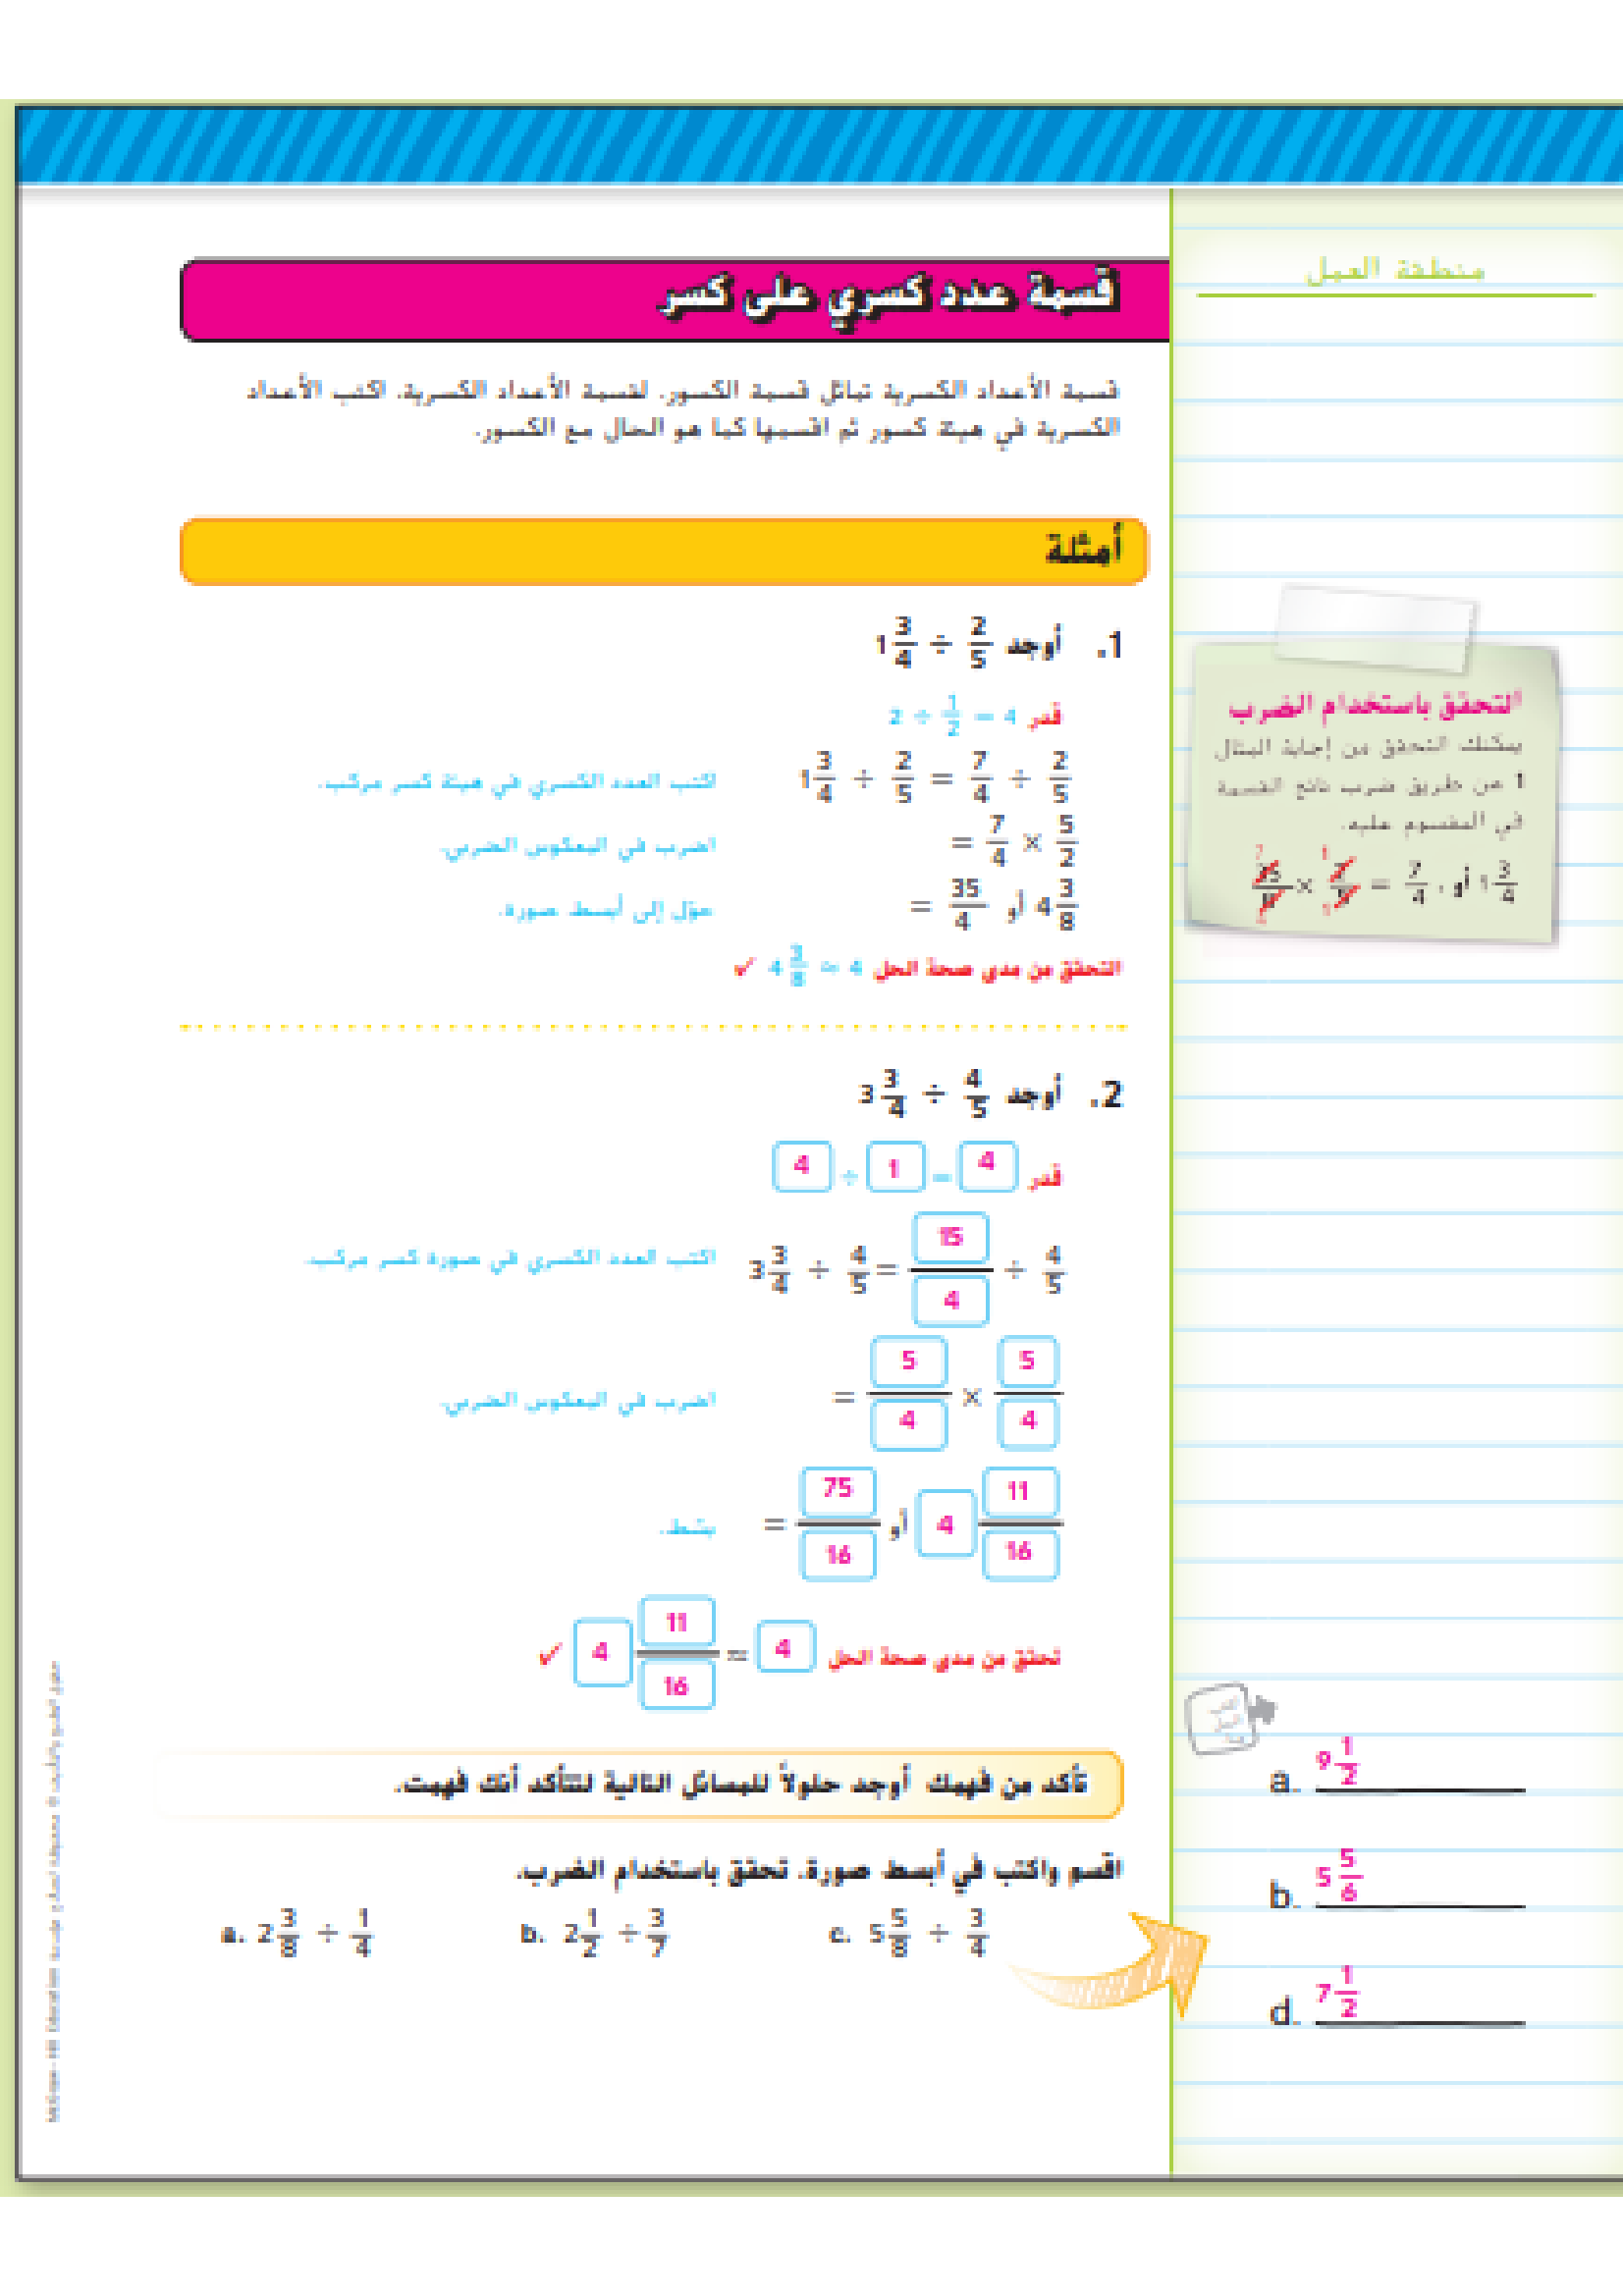 منطقة العمل
قسمة عدد كسري على كسر
قسمة الأعداد الكسرية تماثل قسمة الكسور. لقسمة الأعداد الكسرية، اكتب الأعداد
الكسرية في هيئة كسور ثم اقسمها كما هو الحال مع الكسور.
أمثلة
1. أوجد 1 3/4 ÷ 2/5
قدر 2 ÷ 1/2 = 4
1 3/4 ÷ 2/5 = 7/4 ÷ 2/5 اكتب العدد الكسري في هيئة كسر مركب.
= 7/4 × 5/2 اضرب في المعكوس الضربي.
= 35/4 أو 4 3/8 حوّل إلى أبسط صورة.
التحقق من مدى صحة الحل 4 3/8 ≈ 4 ✓
التحقق باستخدام الضرب
يمكنك التحقق من إجابة المثال
1 عن طريق ضرب ناتج القسمة
في المقسوم عليه.
= 7/4 ، أو 1 3/4
2. أوجد 3 3/4 ÷ 4/5
قدر 4 ÷ 1 = 4
3 3/4 ÷ 4/5 = 15/4 ÷ 4/5 اكتب العدد الكسري في صورة كسر مركب.
= 5/4 × 5/4 اضرب في المعكوس الضربي.
= 75/16 أو 4 11/16 بسّط.
تحقق من مدى صحة الحل 4 11/16 ≈ 4 ✓
تأكد من فهمك أوجد حلولاً للمسائل التالية لتتأكد أنك فهمت.
اقسم واكتب في أبسط صورة. تحقق باستخدام الضرب.
a. 2 3/8 ÷ 1/4
b. 2 1/2 ÷ 3/7
c. 5 5/8 ÷ 3/4
a. 9 1/2
b. 5 5/6
d. 7 1/2